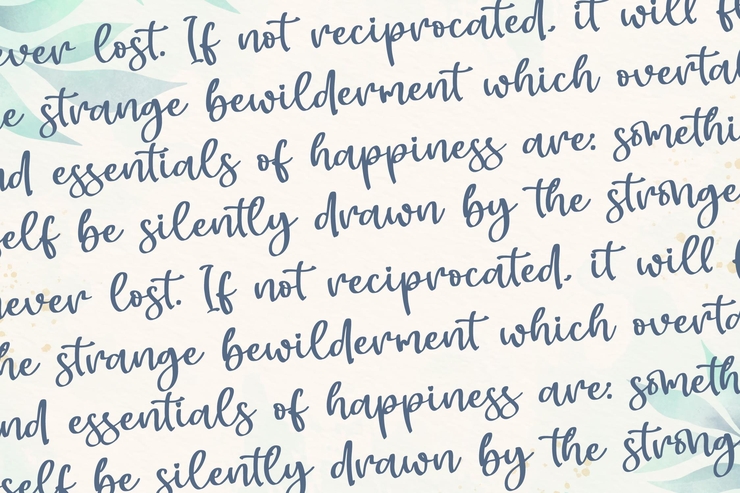 ever lost. If not reciprocated, it will f
e strange bewilderment which overta
nd essentials of happiness are: somethi
self be silently drawn by the stronge
never lost. If not reciprocated, it will f
he strange bewilderment which overta
and essentials of happiness are: someth
self be silently drawn by the strong